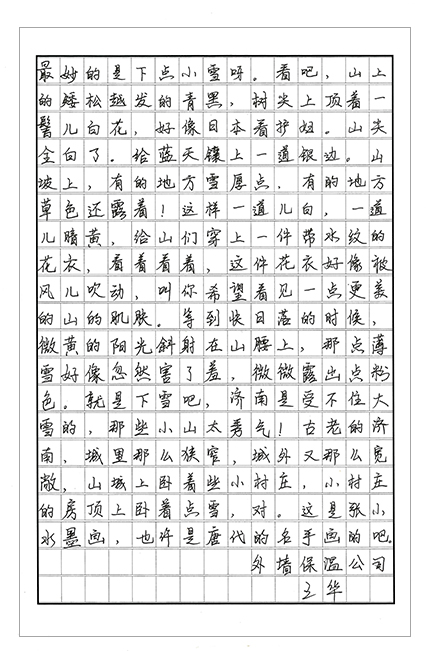 最妙的是下点小雪呀。看吧，山上
的矮松越发的青黑，树尖上顶着一
髻儿白花，好像日本看护妇。山尖
全白了。给蓝天镶上一道银边。山
坡上，有的地方雪厚点，有的地方
草色还露着！这样一道儿白，一道
儿晴黄，给山们穿上一件带水纹的
花衣，看着看着，这件花衣好像被
风儿吹动，叫你希望看见一点更美
的山的肌肤。等到快日落的时候，
微黄的阳光斜射在山腰上，那点薄
雪好像忽然害了羞，微微露出点粉
色。就是下雪吧，济南是受不住大
雪的，那些小山太秀气！古老的济
南，城里那么狭窄，城外又那么宽
敞，山城上卧着些小村庄，小村庄
的房顶上卧着点雪，对。这是张小
水墨画，也许是唐代的名手画的吧。
外墙保温公司
王华